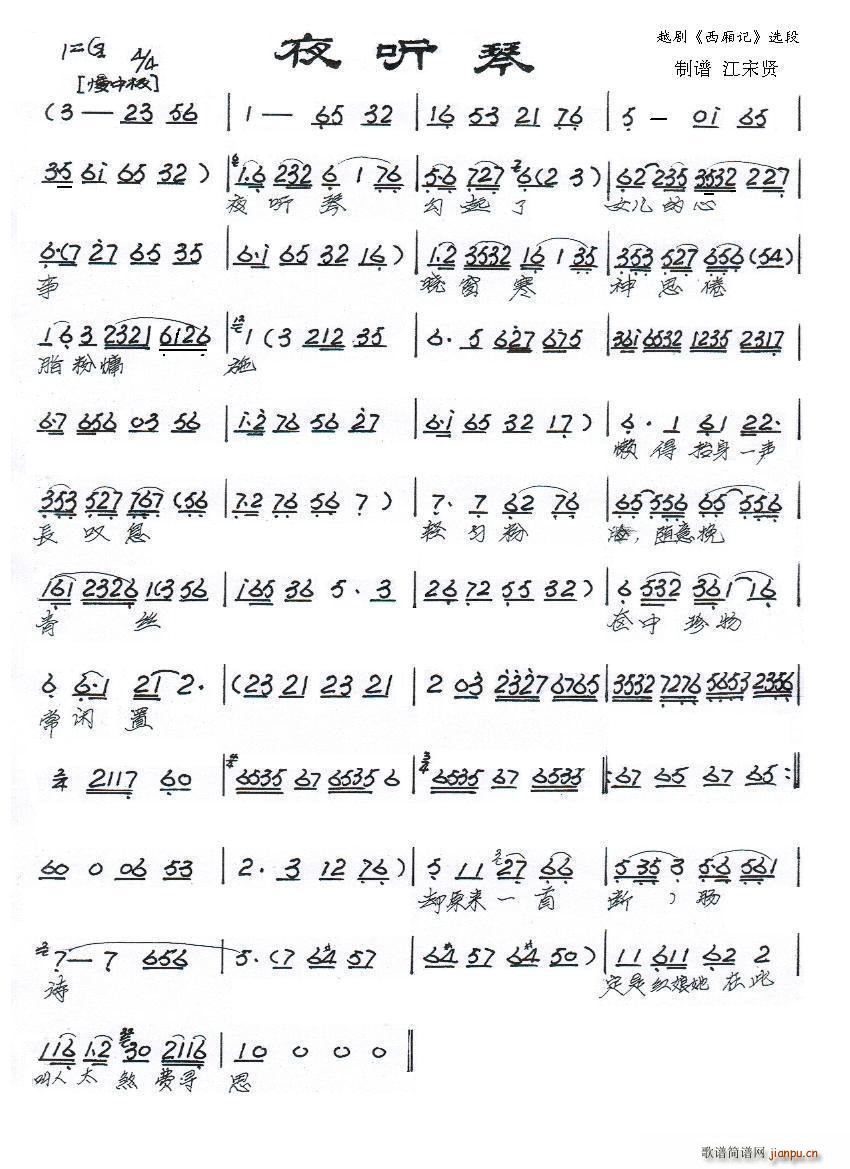 夜听琴
越剧《西厢记》选段
制谱 江宋贤
1=G 4/4
[慢中板]
(3 — 23 56 | 1 — 65 32 | 16 53 21 76 | 5 — 0i 65 |
35 6i 65 32 ) | 1·6 232 6 1 76 | 5·6 727 6(2 3) | 62 235 3532 227 |
夜 听 琴 勾 起 了 女儿的心
6·(7 27 65 35 | 6·i 65 32 16 ) | 1·2 3532 16 1 35 | 353 527 656 (54) |
事 晓 窗 寒 神 思 倦
1 6 3 2321 6126 | 1 (3 212 35 | 6· 5 627 675 | 36i 6532 1235 2317 |
脂粉慵 施
6·7 656 03 56 | i·2 76 56 27 | 6·i 65 32 17 ) | 6· 1 61 22· |
懒 得 抬身一声
353 527 767 (56 | 7·2 76 56 7 ) | 7· 7 62 76 | 65 556 65 556 |
長 叹 息 轻 匀 粉 随意挽
161 2326 1(3 56 | i65 36 5 · 3 | 26 72 55 32 ) | 6 532 36 1 16 |
青 丝 奁 中 珍 物
6 6·1 21 2· | (23 21 23 21 | 2 03 2327 6765 | 3532 7276 5653 2356 |
常 闲 置
2117 60 | 6535 67 6535 6 | 6535 67 6535 |: 67 65 67 65 :||
60 0 06 53 | 2· 3 12 76 ) | 5 11 27 66 | 5 35 3 5·6 561 |
却原来一首 断 肠
7 — 7 656 | 5·(7 6#4 57 | 6#4 57 6#4 50 ) | 11 611 62 2 |
诗 定是红娘她 在此
116 1·2 30 2116 | 10 0 0 0 ||
叫人 太 煞 费寻 思
歌谱简谱网 jianpu.cn